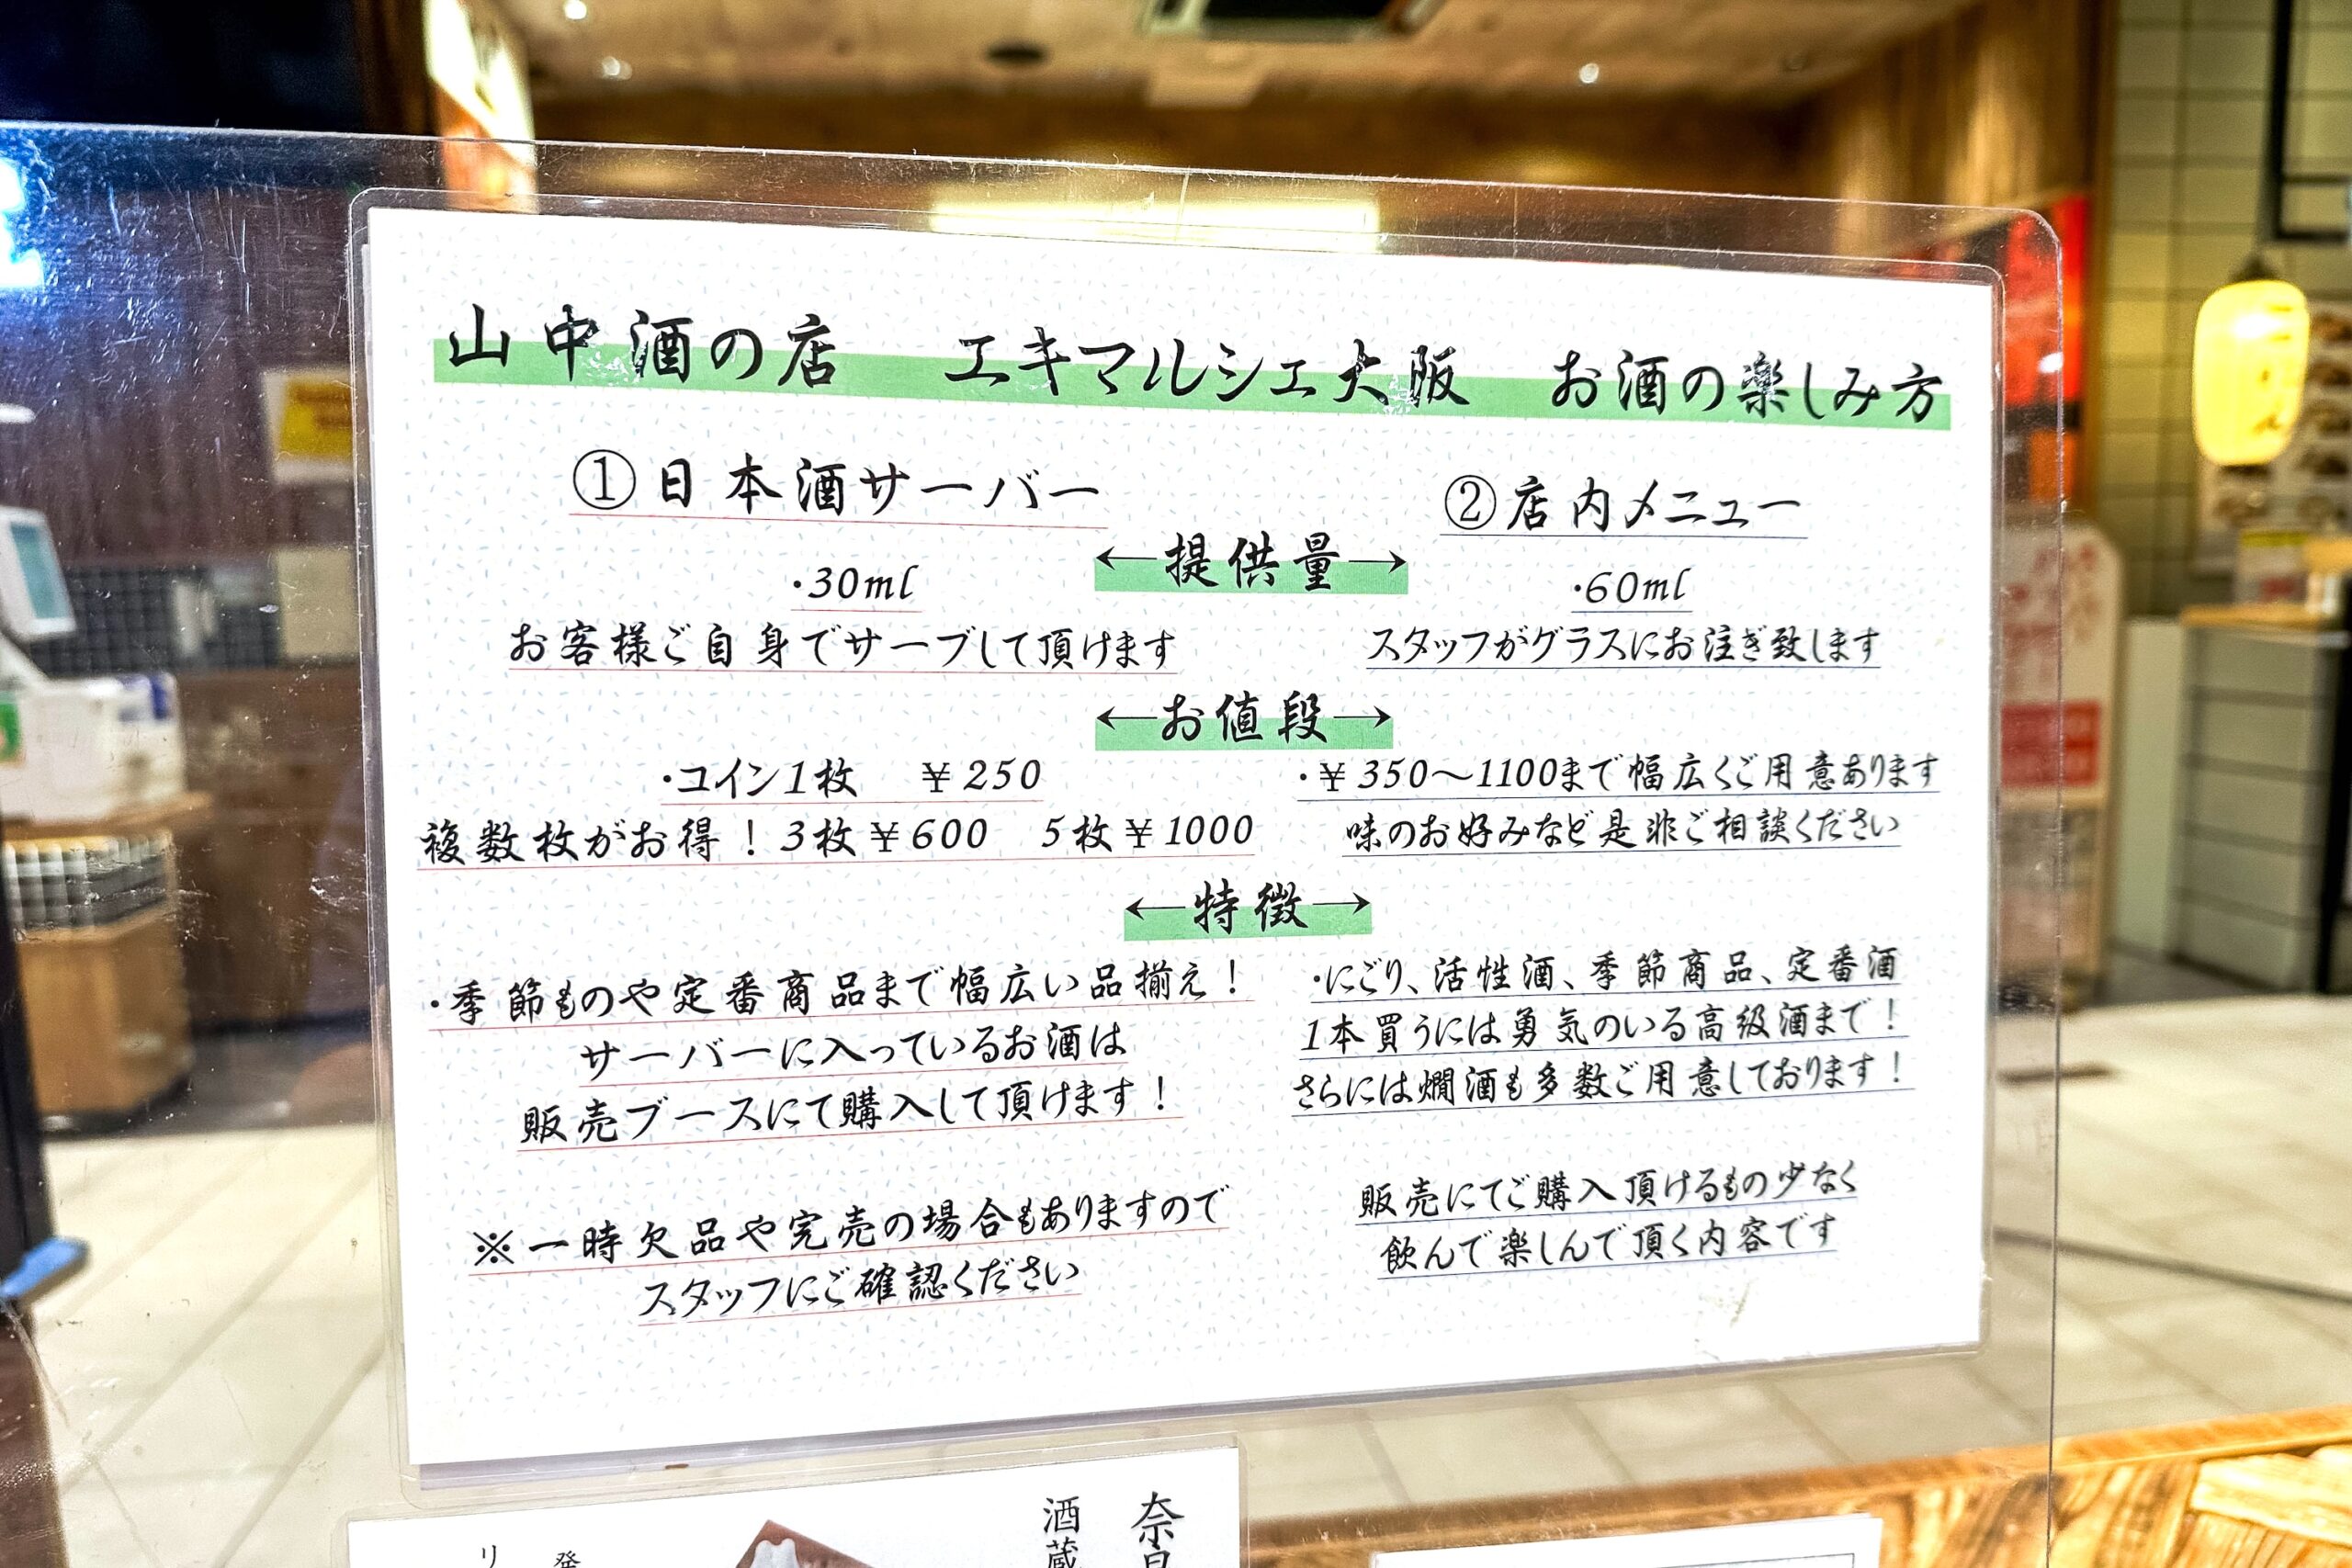 山中酒の店 エキマルシェ大阪 お酒の楽しみ方
①日本酒サーバー
②店内メニュー
←提供量→
・30ml
・60ml
お客様ご自身でサーブして頂けます
スタッフがグラスにお注ぎ致します
←お値段→
・コイン1枚 ¥250
複数枚がお得！3枚¥600 5枚¥1000
・¥350～1100まで幅広くご用意あります
味のお好みなど是非ご相談ください
←特徴→
・季節ものや定番商品まで幅広い品揃え！
サーバーに入っているお酒は
販売ブースにて購入して頂けます！
※一時欠品や完売の場合もありますので
スタッフにご確認ください
・にごり、活性酒、季節商品、定番酒
1本買うには勇気のいる高級酒まで！
さらには燗酒も多数ご用意しております！
販売にてご購入頂けるもの少なく
飲んで楽しんで頂く内容です
奈
酒蔵
リ